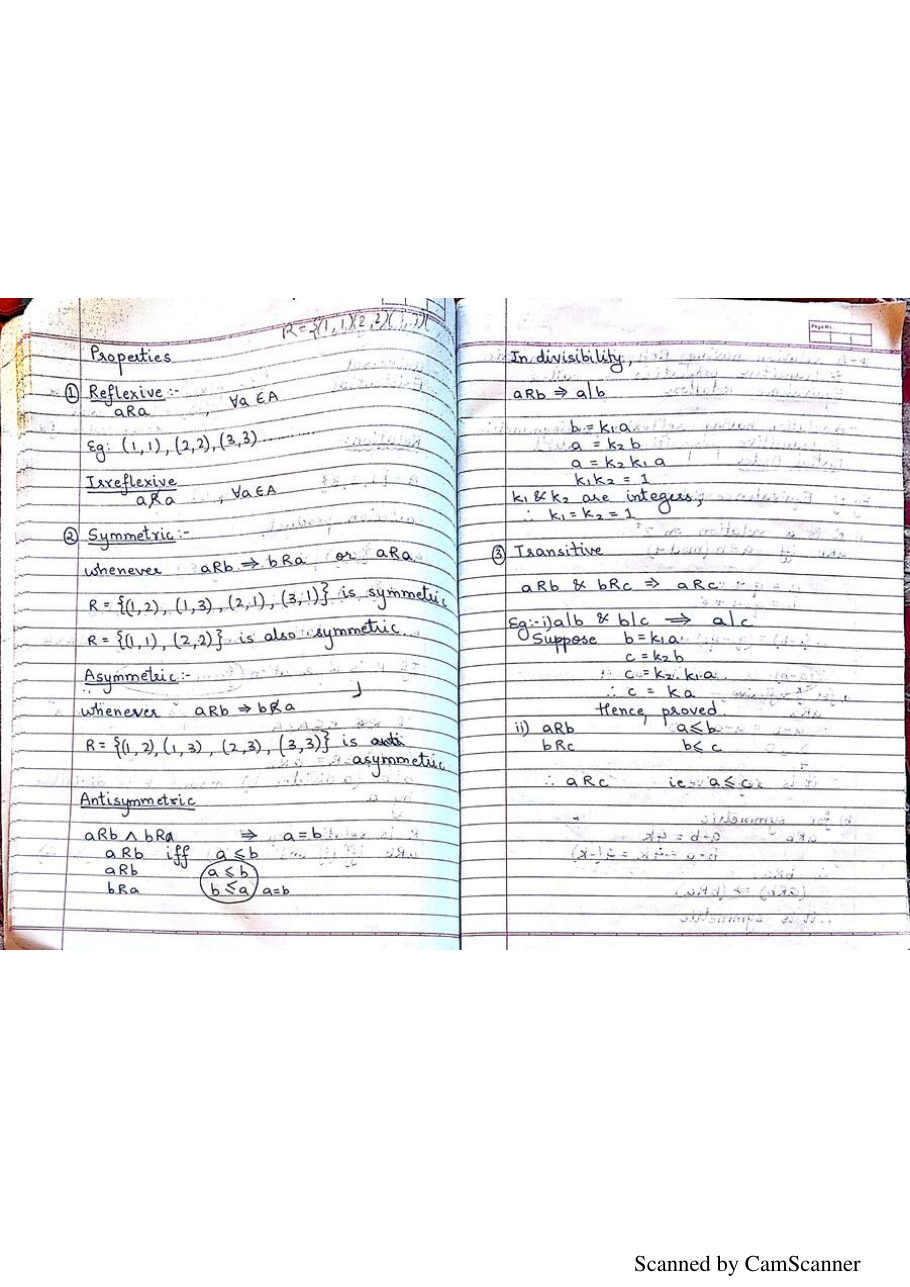 R = {(1,1)(2,2)(3,3)
Properties
① Reflexive :-
aRa , ∀a ∈ A
Eg: (1,1), (2,2), (3,3) ..........
Irreflexive
aR̸a , ∀a ∈ A
② Symmetric :-
whenever aRb ⇒ bRa or aRa
R = {(1,2), (1,3), (2,1), (3,1)} is symmetric
R = {(1,1), (2,2)} is also symmetric.
Asymmetric :-
whenever aRb ⇒ bR̸a
R = {(1,2), (1,3), (2,3), (3,3)} is anti
asymmetric
Antisymmetric
aRb ∧ bRa ⇒ a = b
aRb iff a ≤ b
aRb a ≤ b
bRa b ≤ a a=b
Page No.
In divisibility,
aRb ⇒ a|b
b = k₁a
a = k₂ b
a = k₂ k₁ a
k₁k₂ = 1
k₁ & k₂ are integers,
∴ k₁ = k₂ = 1
③ Transitive
aRb & bRc ⇒ aRc
Eg:- i) a|b & b|c ⇒ a|c
Suppose b = k₁a
c = k₂ b
∴ c = k₂. k₁.a
∴ c = ka
Hence, proved.
ii) aRb a ≤ b
bRc b ≤ c
∴ aRc ie a ≤ c
Scanned by CamScanner